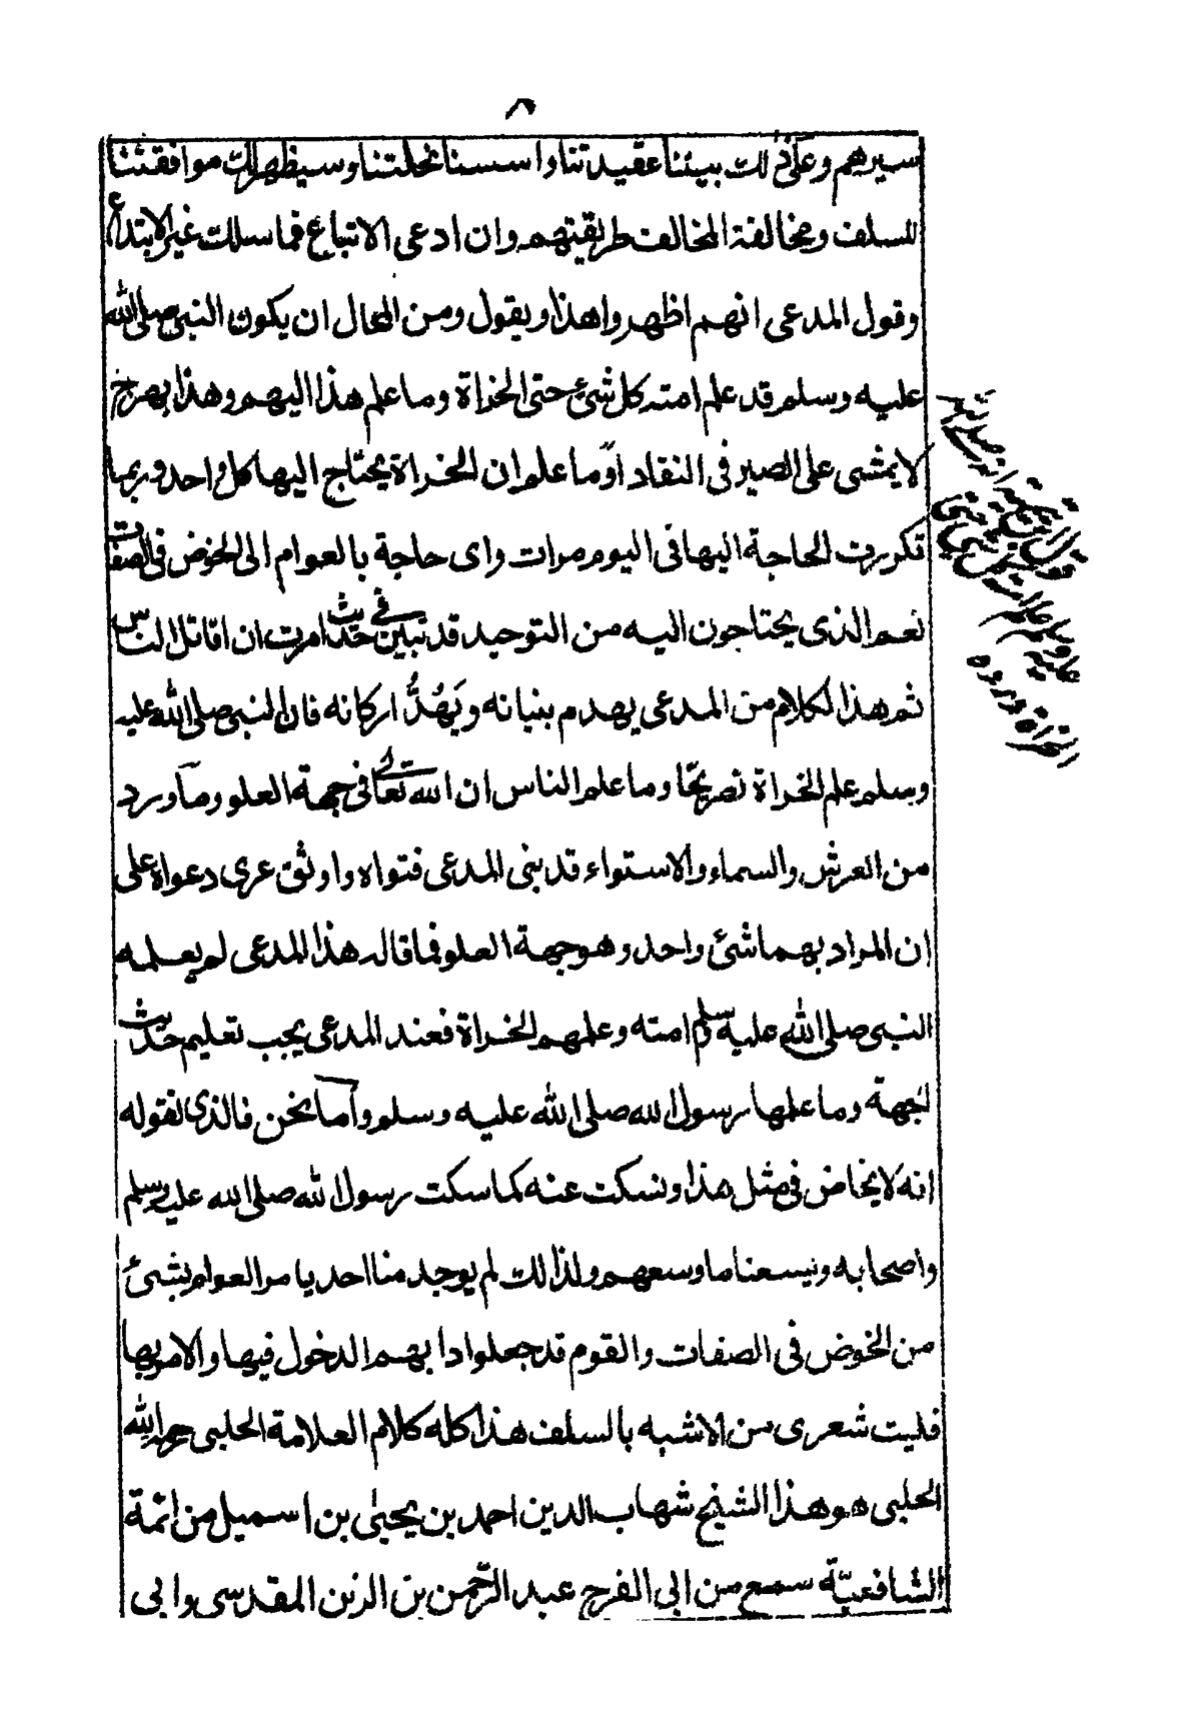 ٨
سيرهم وعلى ذلك بيننا عقيدتنا واسسنا نحلتنا وسيظهر لك موافقتنا
للسلف ومخالفة المخالف طريقتهم وان ادعى الاتباع فما سلك غير الابتداع
وقول المدعى انهم اظهروا هذا ويقول ومن المحال ان يكون النبى صلى الله
عليه وسلم قد علم امته كل شئ حتى الخراة وما علم هذا اليهم وهذا بهرج
لا يمشى على الصير فى النقاد اوما علم ان الخراة يحتاج اليها كل واحد وربما
تكررت الحاجة اليها فى اليوم مرات واى حاجة بالعوام الى الخوض فى الصفات
نعم الذى يحتاجون اليه من التوحيد قد تبين فى حديث امرت ان اقاتل الناس
ثم هذا الكلام من المدعى يهدم بنيانه ويَهُدُّ اركانه فان النبى صلى الله عليه
وسلم علم الخراة تصريحًا وما علم الناس ان الله تعالى فى جهة العلو وما ورد
من العرش والسماء والاستواء قد بنى المدعى فتواه واوثق عرى دعواه على
ان المراد بهما شئ واحد وهو جهة العلو فما قاله هذا المدعى لم يعلمه
النبى صلى الله عليه وسلم امته وعلمهم الخراة فعند المدعى يجب تعليم حديث
الجهة وما علمها رسول الله صلى الله عليه وسلم واما نحن فالذى نقوله
انه لا يخاض فى مثل هذا ونسكت عنه كما سكت رسول الله صلى الله عليه وسلم
واصحابه ويسعنا ما وسعهم ولذلك لم يوجد منا احد يامر العوام بشئ
من الخوض فى الصفات والقوم قد جعلوا دابهم الدخول فيها والامر بها
فليت شعرى من الاشبه بالسلف هذا كله كلام العلامة الحلبى رحمه الله
الحلبى هو هذا الشيخ شهاب الدين احمد بن يحيىٰ بن اسمعيل من ائمة
الشافعيّة سمع من ابى الفرج عبد الرّحمن بن الزين المقدسى وابى
قول ابن تيمية انه صلى الله
عليه وسلم علم امته كل شئ حتى
الخراة ورده